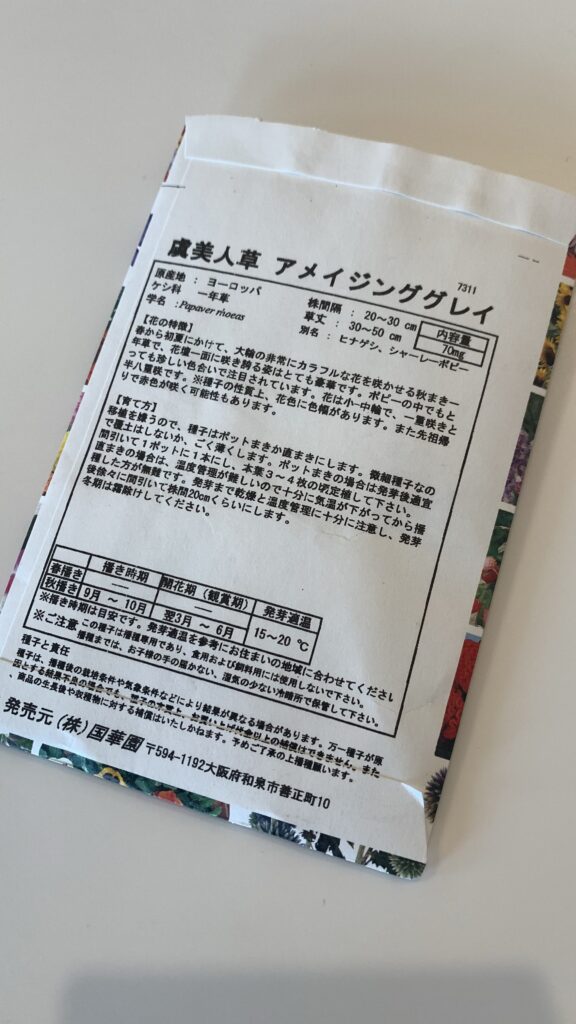 虞美人草 アメイジンググレイ
7311
原産地 : ヨーロッパ
株間隔 : 20～30 cm
内容量
ケシ科 一年草
草丈 : 30～50 cm
70mg
学名 : Papaver rhoeas
別名 : ヒナゲシ、シャーレーポピー
【花の特徴】
春から初夏にかけて、大輪の非常にカラフルな花を咲かせる秋まき一
年草で、花壇一面に咲き誇る姿はとても豪華です。ポピーの中でもと
っても珍しい色合いで注目されています。花は小~中輪で、一重咲きと
半八重咲です。※種子の性質上、花色に色幅があります。また先祖帰
りで赤色が咲く可能性もあります。
【育て方】
移植を嫌うので、種子はポットまきか直まきにします。微細種子なの
で覆土はしないか、ごく薄くします。ポットまきの場合は発芽後適宜
間引いて1ポットに1本にし、本葉3～4枚の頃定植して下さい。
直まきの場合は、温度管理が難しいので十分に気温が下がってから播
種した方が無難です。発芽まで乾燥と温度管理に十分に注意し、発芽
後徐々に間引いて株間20cmくらいにします。
冬期は霜除けしてください。
播き時期 開花期（観賞期） 発芽適温
春播き ―― ―― 15～20 ℃
秋播き 9月 ～ 10月 翌3月 ～ 6月
※播き時期は目安です。発芽適温を参考にお住まいの地域に合わせてください
※ご注意 この種子は播種専用であり、食用および飼料用には使用しないで下さい。
播種までは、お子様の手の届かない、湿気の少ない冷暗所で保管して下さい。
種子と責任
種子は、播種後の栽培条件や気象条件などにより結果が異なる場合があります。万一種子が原
因とする結果不良の場合でも、種子の性質上、お買い上げ代金以上の補償はできません。また
、商品の生長後や収穫物に対する補償はいたしかねます。予めご了承の上播種願います。
発売元（株）国華園 〒594-1192大阪府和泉市善正町10